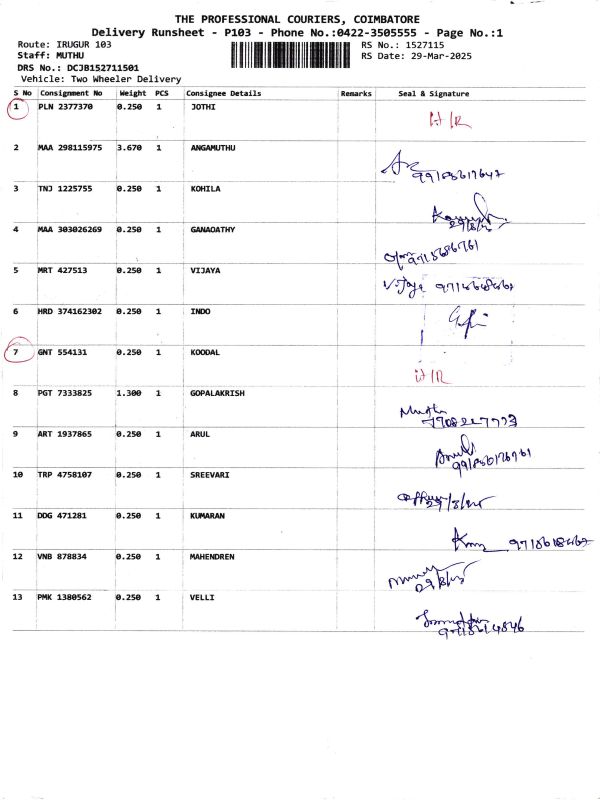 THE PROFESSIONAL COURIERS, COIMBATORE
Delivery Runsheet - P103 - Phone No.:0422-3505555 - Page No.:1
Route: IRUGUR 103 RS No.: 1527115
Staff: MUTHU RS Date: 29-Mar-2025
DRS No.: DCJB152711501
Vehicle: Two Wheeler Delivery
S No Consignment No Weight PCS Consignee Details Remarks Seal & Signature
1 PLN 2377370 0.250 1 JOTHI
2 MAA 298115975 3.670 1 ANGAMUTHU
3 TNJ 1225755 0.250 1 KOHILA
29/3/25
4 MAA 303026269 0.250 1 GANAOATHY
5 MRT 427513 0.250 1 VIJAYA
Vijaya
6 HRD 374162302 0.250 1 INDO
7 GNT 554131 0.250 1 KOODAL
8 PGT 7333825 1.300 1 GOPALAKRISH
Muthu
9 ART 1937865 0.250 1 ARUL
Arul
10 TRP 4758107 0.250 1 SREEVARI
29/3/25
11 DDG 471281 0.250 1 KUMARAN
12 VNB 878834 0.250 1 MAHENDREN
29/3/25
13 PMK 1380562 0.250 1 VELLI